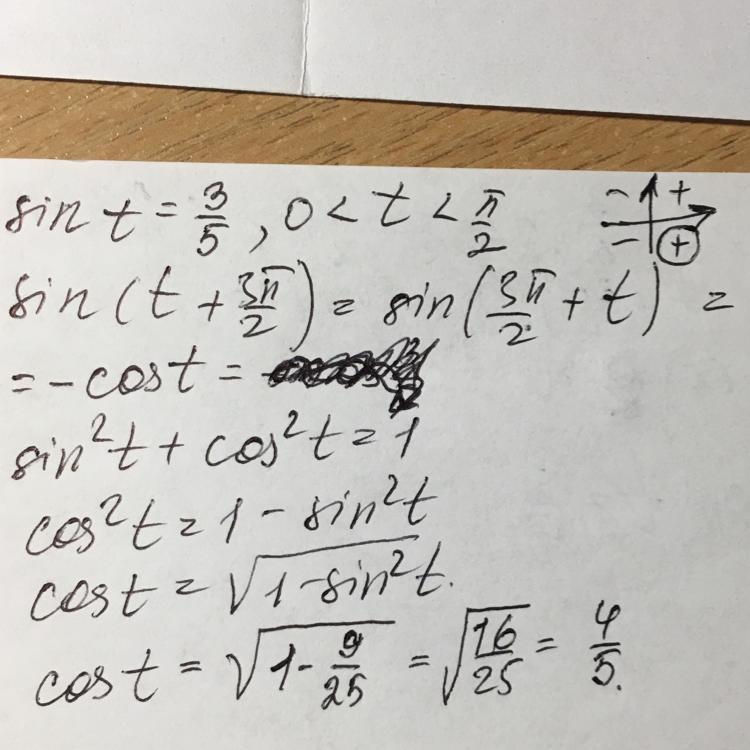 sin t = 3/5, 0 < t < π/2
- +
- +
sin(t + 3π/2) = sin(3π/2 + t) =
= -cos t =
sin²t + cos²t = 1
cos²t = 1 - sin²t
cos t = √(1-sin²t).
cos t = √(1 - 9/25) = √(16/25) = 4/5.